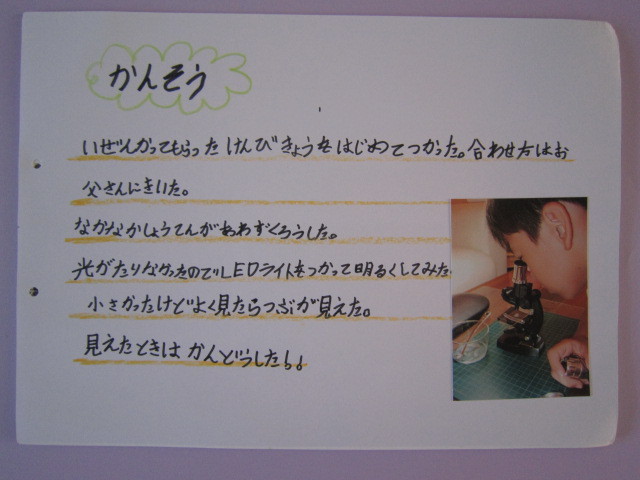 かんそう
いぜんかってもらったけんびきょうをはじめてつかった。合わせ方はお
父さんにきいた。
なかなかしょうてんがあわずくろうした。
光がたりなかったのでLEDライトをつかって明るくしてみた。
小さかったけどよく見たらつぶが見えた。
見えたときはかんどうした!!